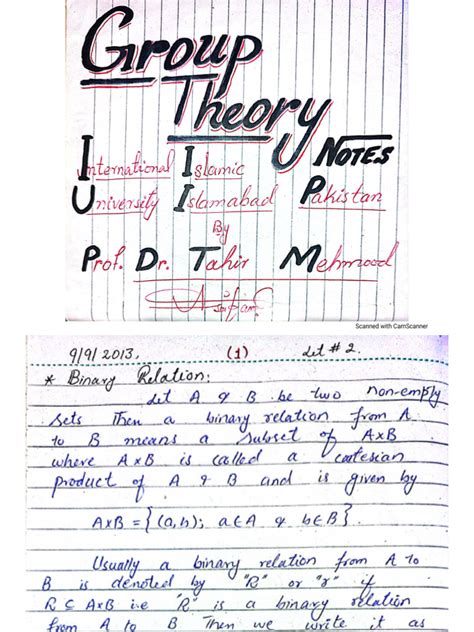 Group
Theory
NOTES
International Islamic
University Islamabad Pakistan
By
Prof. Dr. Tahir Mehmood
Scanned with CamScanner
9/9/2013. (1) Lect # 2.
* Binary Relation:
Let A & B be two non-empty
sets Then a binary relation from A
to B means a subset of A×B
where A×B is called a cartesian
product of A & B and is given by
A×B = {(a,b); a∈A & b∈B}.
Usually a binary relation from A to
B is denoted by "R" or "r" if
R ⊆ A×B i.e "R" is a binary relation
from A to B Then we write it as